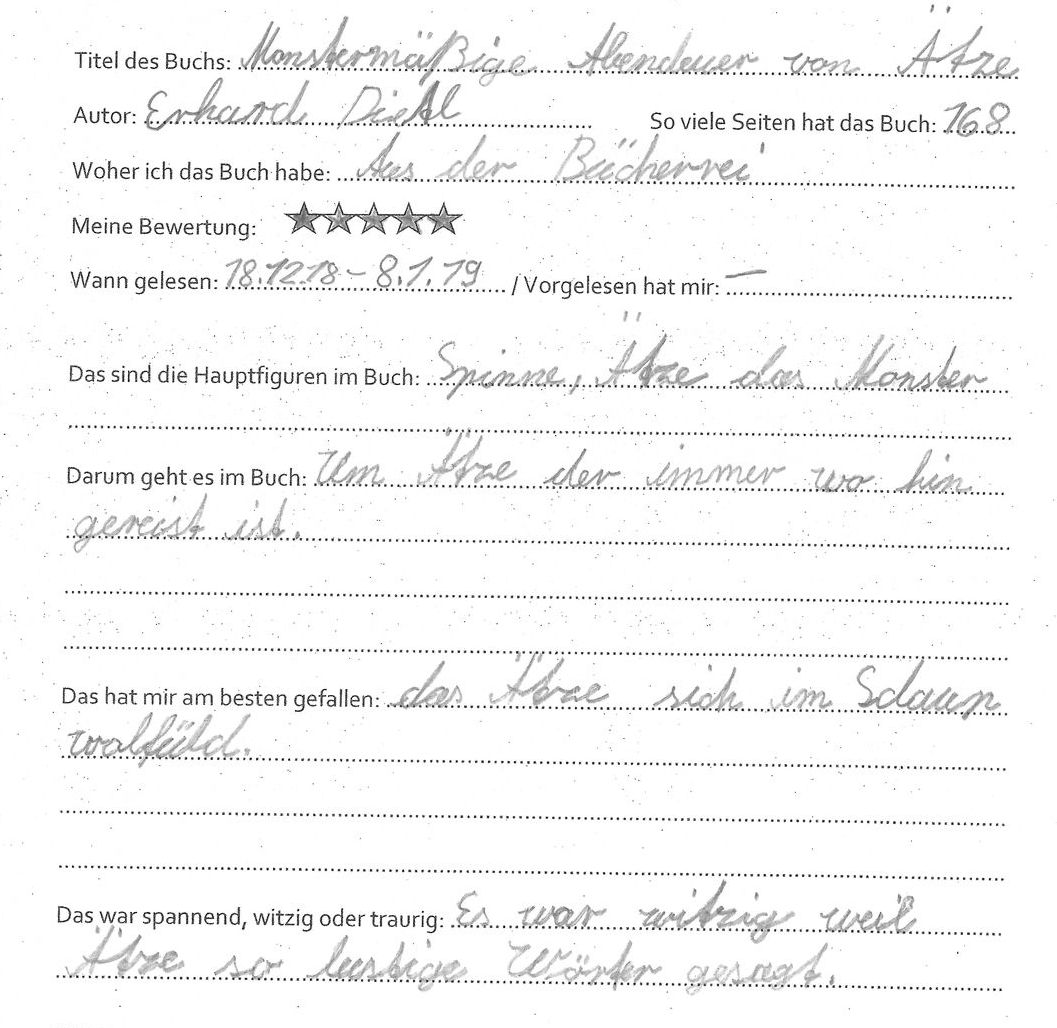 Titel des Buchs: Monstermäßige Abendeuer von Ätze
Autor: Erhard Dietl So viele Seiten hat das Buch: 168
Woher ich das Buch habe: Aus der Bücherrei
Meine Bewertung: ★★★★★
Wann gelesen: 18.12.18 – 8.1.19 / Vorgelesen hat mir: —
Das sind die Hauptfiguren im Buch: Spinne, Ätze das Monster
Darum geht es im Buch: Um Ätze der immer wo hin
gereist ist.
Das hat mir am besten gefallen: das Ätze sich im Sclaun
walfüld.
Das war spannend, witzig oder traurig: Es war witzig weil
Ätze so lustige Wörter gesagt.